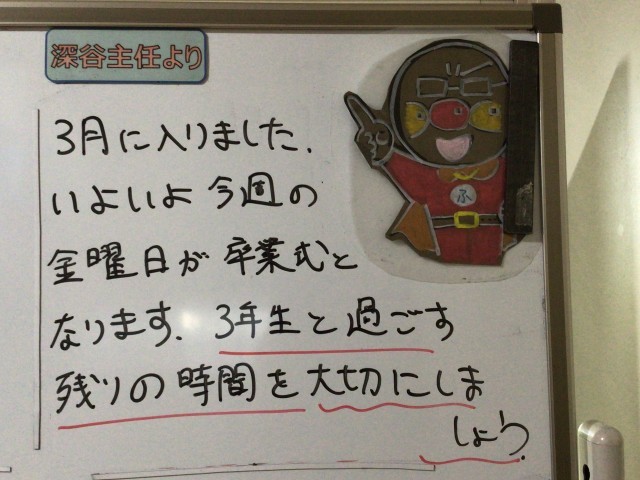 深谷主任より
3月に入りました.
いよいよ今週の
金曜日が卒業式と
なります. 3年生と過ごす
残りの時間を大切にしま
しょう.
ふ